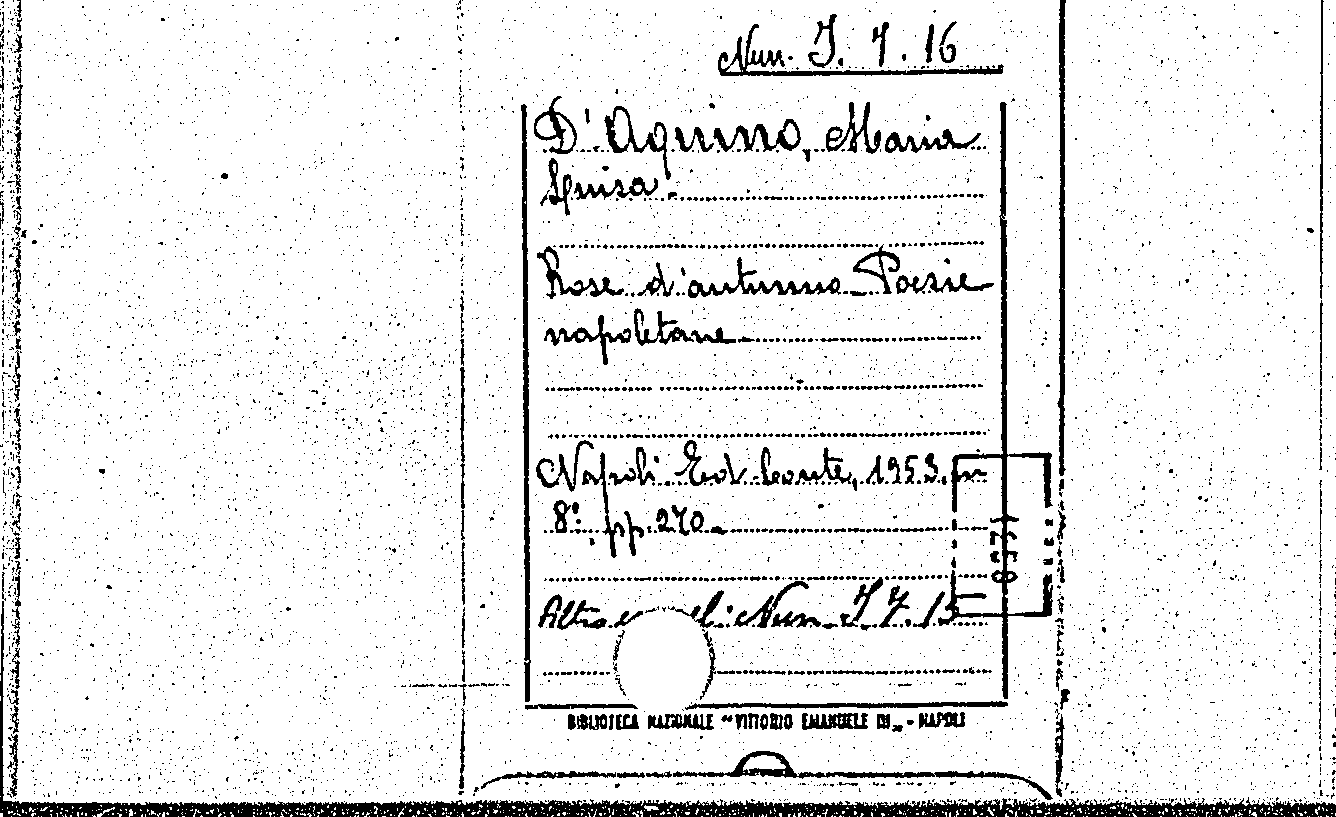 Num. J. 7. 16
D'Aquino, Maria
Luisa.
Rose d'autunno Poesie
napoletane
Napoli Ed. Conte, 1953. in
8°. pp. 270.
Altro Num. J. 7. 15
BIBLIOTECA NAZIONALE "VITTORIO EMANUELE III„ - NAPOLI